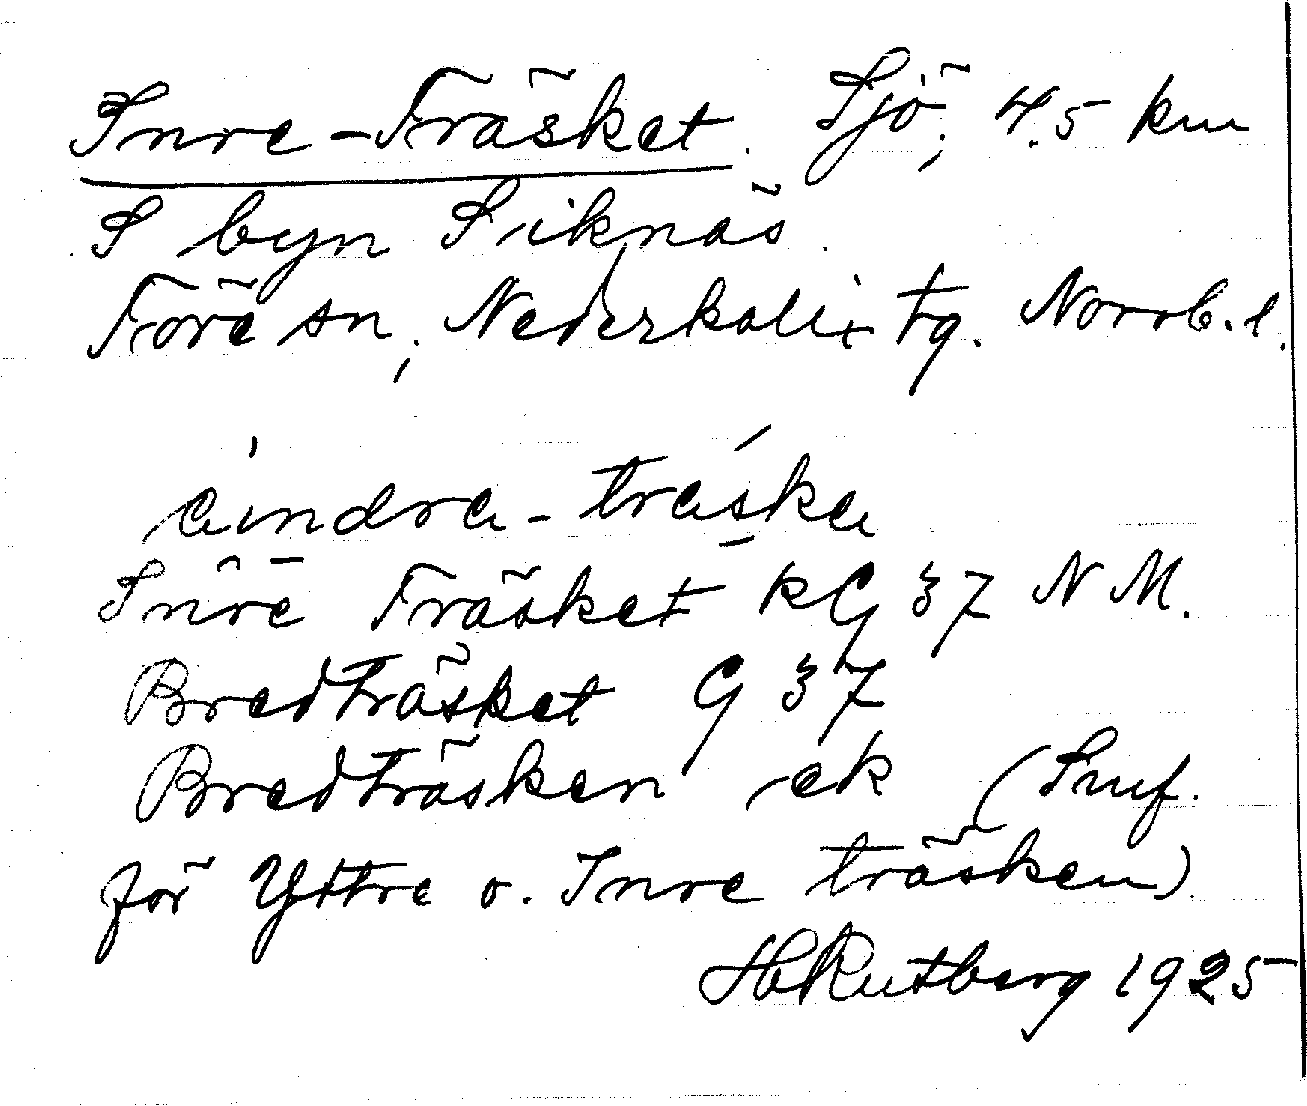 Inre-Träsket. Sjö; 4.5 km
S byn Siknäs.
Töre sn; Nederkalix tg. Norrb. l.
àindra-träska
Inre Träsket kG 37 NM.
Bredträsket G 37
Bredträsken ek (Smf.
för Yttre o. Inre träsken)
HRutberg 1925